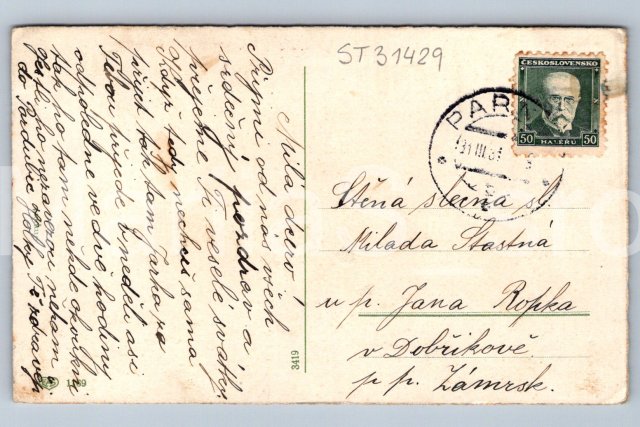 ST31429
ČESKOSLOVENSKO
50 HALÉŘŮ 50
PAR
31 III 3
Milá dcero!
Přijmi od nás všech
srdečný pozdrav a
přejeme Ti veselé svátky.
Když tedy nechceš sama
přijet tak tam Jarka pro
Tebou přijede v neděli asi
odpoledne ve dvě hodiny
tak ho tam někde
do Pardubic
Ctěná slečna sl.
Milada Šťastná
u p. Jana Ropka
v Dobříkově
p. p. Zámrsk.
3419